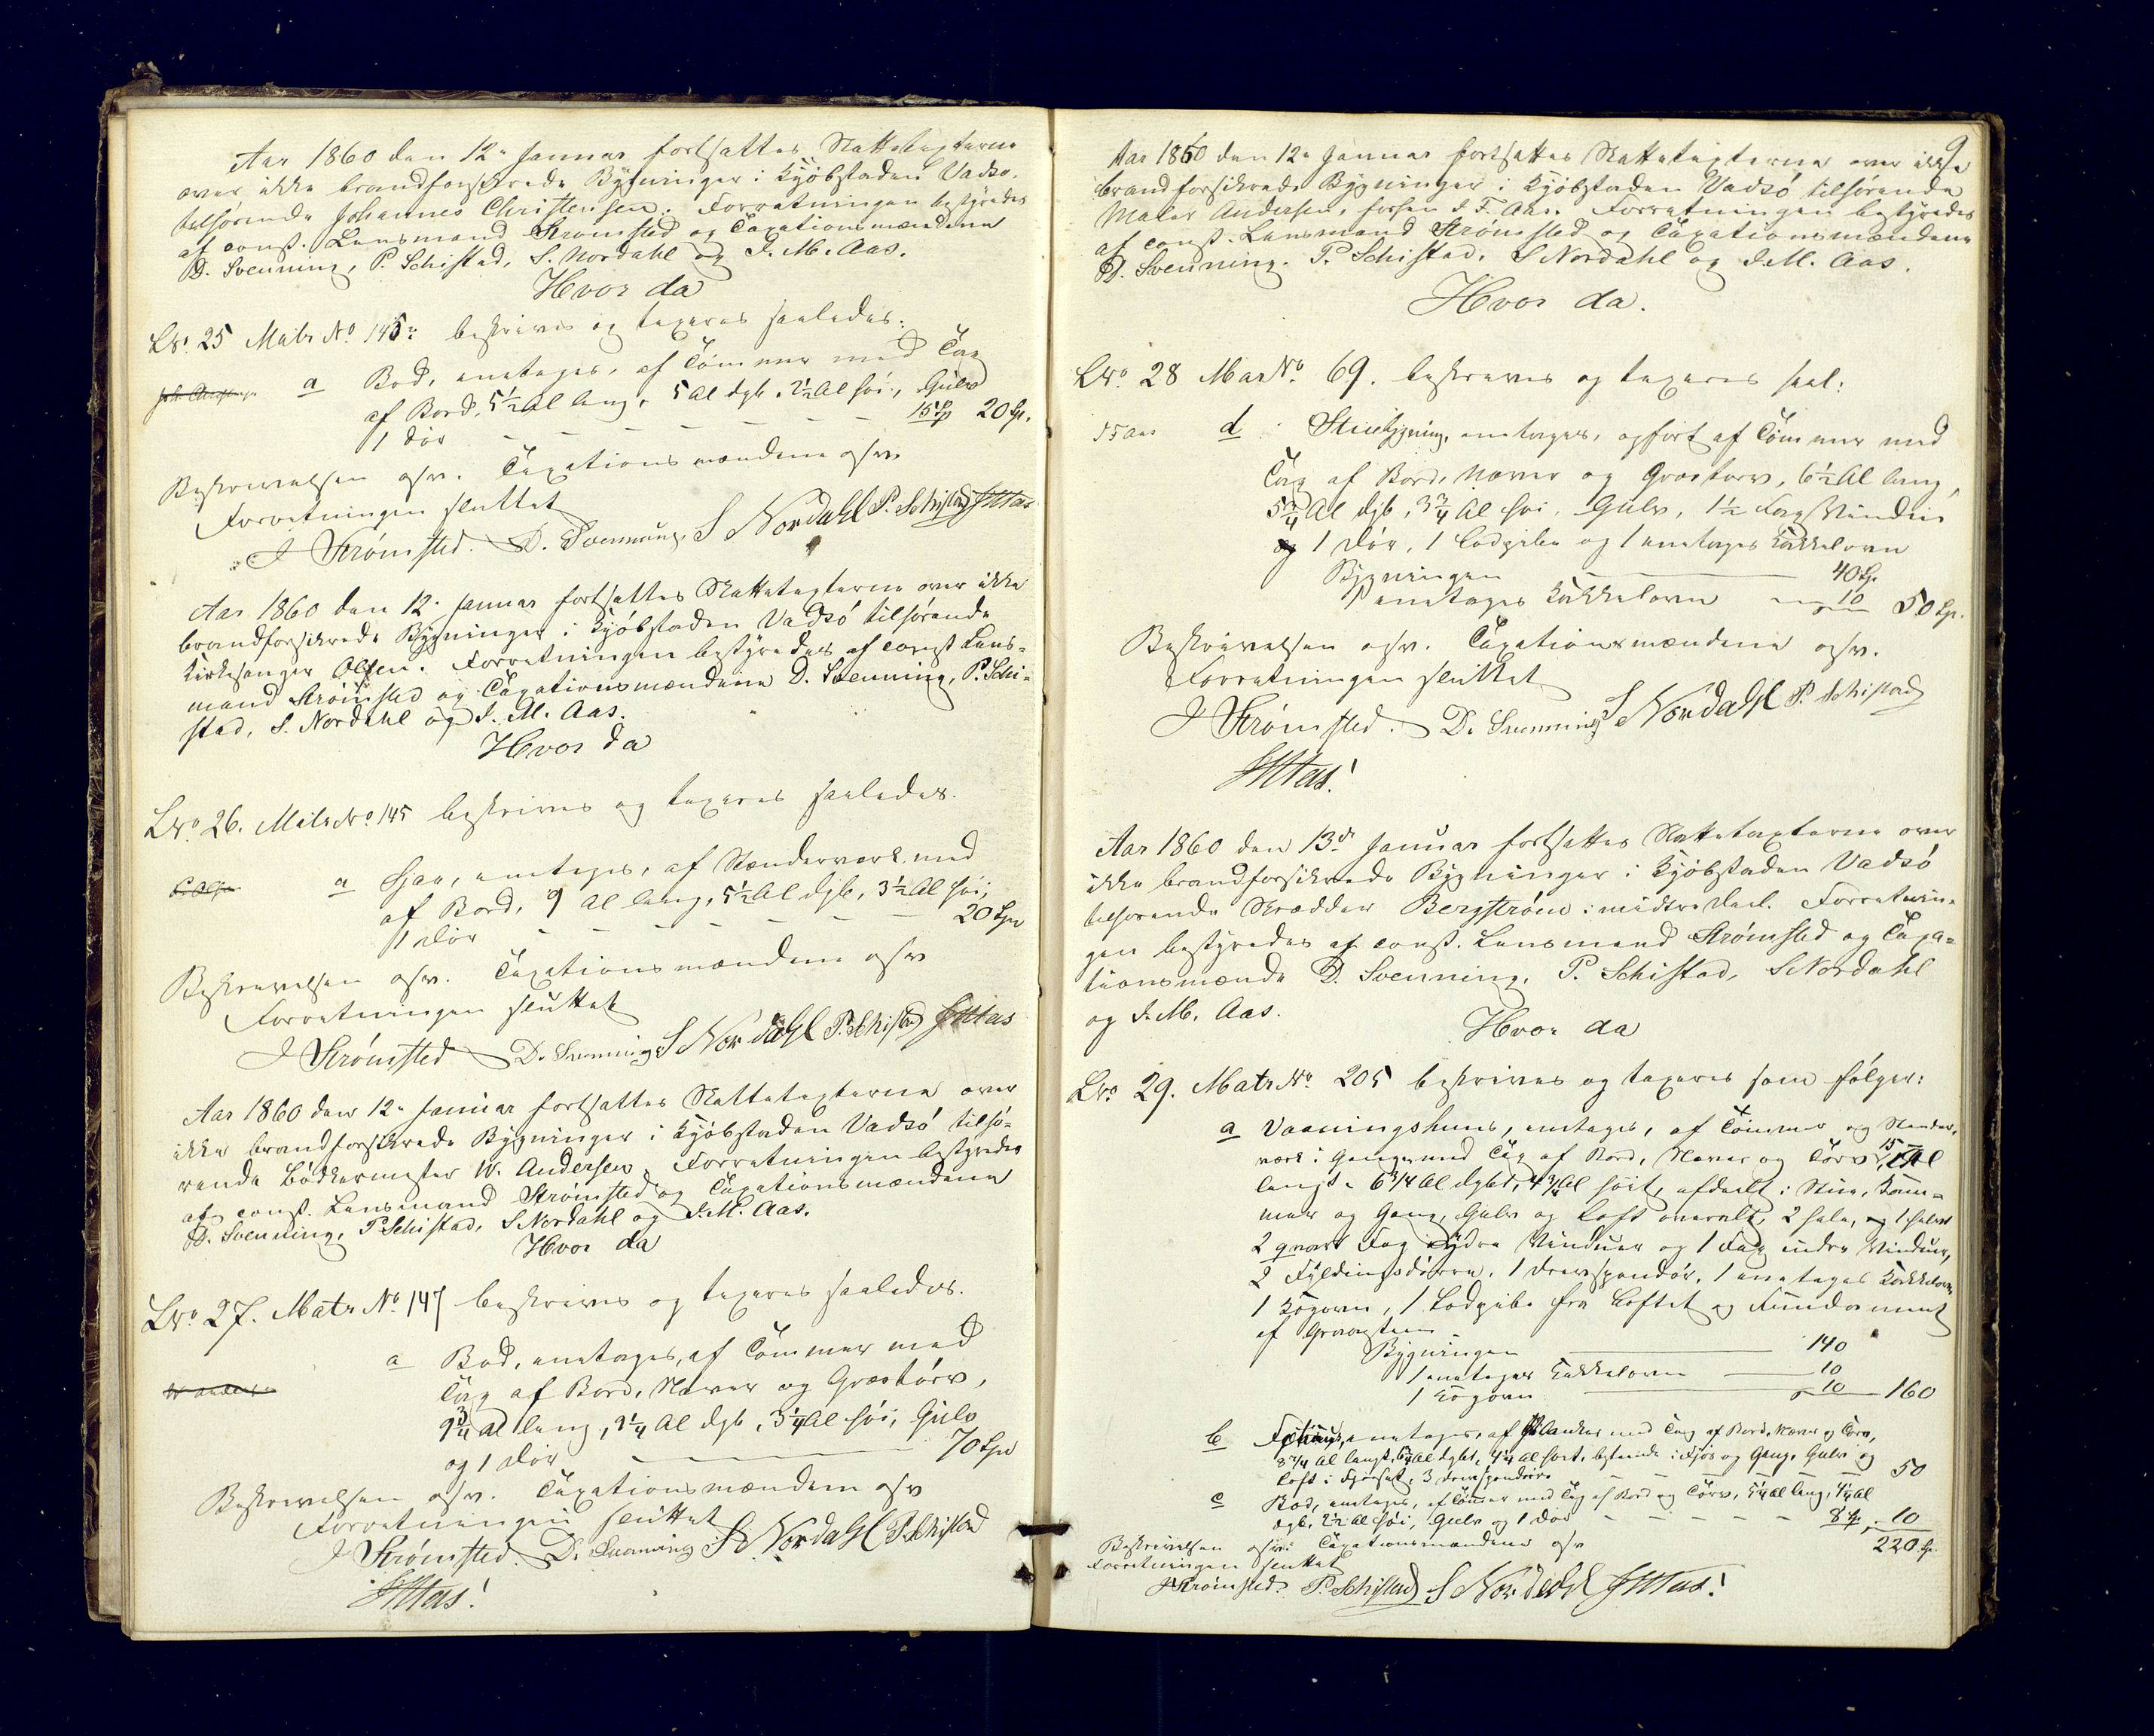 Aar 1860 den 12e Januar fortsattes Skattetaxterne
over ikke brandforsikrede Bygninger i Kjøbstaden Vadsø,
tilhørende Johannes Christensen. Forretningen bestyredes
af const. Lensmand Strømsted og Taxationsmændene
D. Svenning, P. Schistad, S. Nordahl og J. M. Aas.
Hvor da
LNo. 25 Matr No 145: beskrives og taxeres saaledes:
Joh. Christens.
a Bod, eenetages, af Tømmer med Tag
af Bord, 5½ Al lang, 5 Al dyb, 2½ Al høi, Gulv
1 Dør - - - - - - 15 Sp 20 Sp.
Beskrivelsen osv. Taxationsmændene osv.
Forretningen sluttet
J Strømsted. D. Svenning. S Nordahl P. Schistad JMAas
Aar 1860 den 12. Januar fortsattes Skattetaxterne over ikke
brandforsikrede Bygninger i Kjøbstaden Vadsø tilhørende
Kirkesanger Olsen. Forretningen bestyredes af const Lens-
mand Strømsted og Taxationsmændene D. Svenning, P. Schi-
stad, S. Nordahl og J. M. Aas.
Hvor da
LNo 26. Matr No. 145 beskrives og taxeres saaledes.
a Sjaa, eenetages, af Stænderværk med
af Bord, 9 Al lang, 5½ Al dyb, 3½ Al høi,
1 Dør - - - - - - 20 Spd
Beskrivelsen osv. Taxationsmændene osv
Forretningen sluttet
J Strømsted D. Svenning S Nordahl P. Schistad JMAas
Aar 1860 den 12e Januar fortsattes Skattetaxterne over
ikke brandforsikrede Bygninger i Kjøbstaden Vadsø tilhø-
rende Bødkermester W. Andersen. Forretningen bestyredes
af const. Lensmand Strømsted og Taxationsmændene
D. Svenning, P Schistad, S Nordahl og J. M. Aas.
Hvor da
LNo 27. Matr No 147 beskrives og taxeres saaledes.
a Bod, eenetages, af Tømmer med
W Andersen
Tag af Bord, Næver og Græstørv,
9¾ Al lang, 9¼ Al dyb, 3¼ Al høi, Gulv
og 1 Dør 70 Spd
Beskrivelsen osv. Taxationsmændene osv
Forretningen sluttet
J Strømsted. D. Svenning S. Nordahl P. Schistad
JMAas!
9
Aar 1860 den 12e Januar fortsattes Skattetaxterne over ikke
brandforsikrede Bygninger i Kjøbstaden Vadsø tilhørende
Maler Andersen, forhen J. F. Aas. Forretningen bestyredes
af const. Lensmand Strømsted og Taxationsmændene
D. Svenning. P. Schistad, S Nordahl og J. M. Aas.
Hvor da.
LNo. 28 Mar No. 69. beskreves og taxeres saal:
J F Aas
d Stuebygning, eenetages, opført af Tømmer med
Tag af Bord, Næver og Græstørv, 6½ Al lang,
5¾ Al dyb, 3¾ Al høi, Gulv, 1½ Fag Vinduer
og 1 Dør, 1 Lodpibe og 1 eenetages Kakkelovn
Bygningen 40 Sp.
1 eenetages Kakkelovn 10 50 Sp.
Beskrivelsen osv. Taxationsmændene osv.
Forretningen sluttet
J Strømsted. D. Svenning S Nordahl P. Schistad
JMAas!
Aar 1860 den 13de Januar fortsattes Skattetaxterne over
ikke brandforsikrede Bygninger i Kjøbstaden Vadsø
tilhørende Skrædder Bergstrøm i midtre Deel. Forretnin-
gen bestyredes af const. Lensmand Strømsted og Taxa-
tionsmænde D. Svenning, P. Schistad, S Nordahl
og J. M. Aas.
Hvor da
LNo. 29. Matr No. 205 beskrives og taxeres som følger:
a Vaaningshuus, eenetages, af Tømmer og Stænder-
værk i Gangen med Tag af Bord, Næver og Tørv, 15 Al
langt, 6¾ Al dybt, 4¾ Al høit, afdeelt i Stue, Kam-
mer og Gang, Gulv og Loft overalt, 2 hele, 1 halvt
2 qvart Fag ydre Vinduer og 1 Fag indre Vinduer,
2 Fyldingsdørre, 1 Drevspandør, 1 eenetages Kakkelovn
1 Kogovn, 1 Lodpibe fra Loftet og Fundament
af Graasteen
Bygningen 140
1 eenetages Kakkelovn 10
1 Kogovn 10 160
b Fjøshuus, eenetages, af Planker med Tag af Bord, Næver og Tørv,
8¾ Al langt, 6¼ Al dybt, 4¼ Al høit, bestaaende i Fjøs og Gang, Gulv og
Loft i Fjøset, 3 Drevspandørre 50
c Bod, eenetages, af Tømmer med Tag af Bord og Tørv, 5¼ Al lang, 4¼ Al
dyb, 2½ Al høi, Gulv og 1 Dør - - - - - 8 Sp 10
Beskrivelsen osv: Taxationsmændene osv 220 Sp.
Forretningen sluttet
J Strømsted. P. Schistad S Nordahl JMAas!